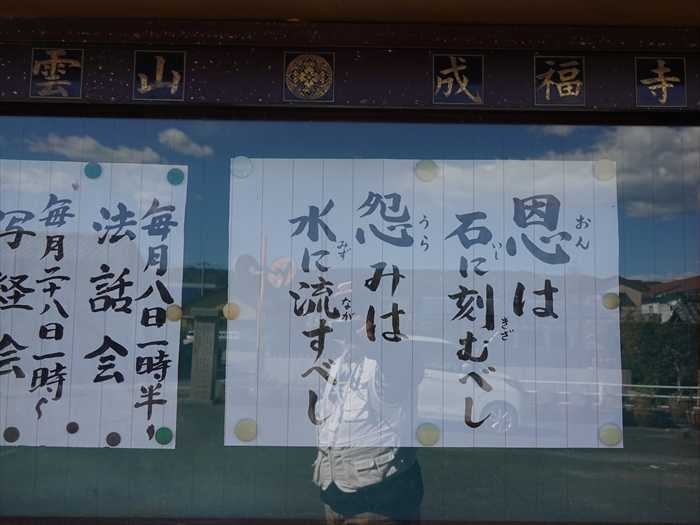 雲山 成福寺
恩は
石に刻むべし
怨みは
水に流すべし
おん
いし
きざ
うら
みず
なが
毎月八日一時半〜
法話会
毎月二十八日一時〜
写経会